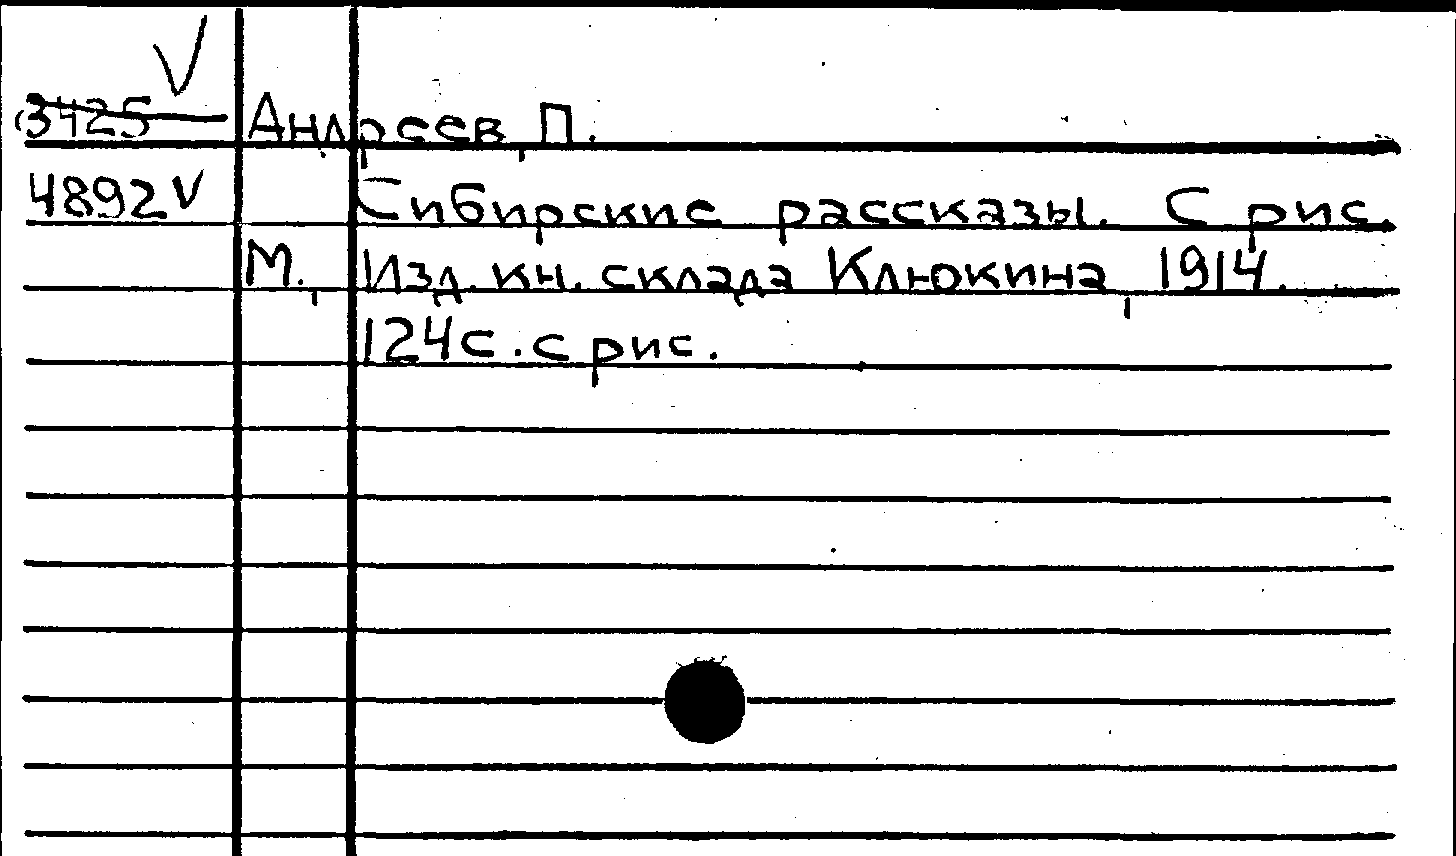 V
3425 Андреев, П.
4892 V Сибирские рассказы. С рис.
М., Изд. кн. склада Клюкина, 1914.
124с. с рис.